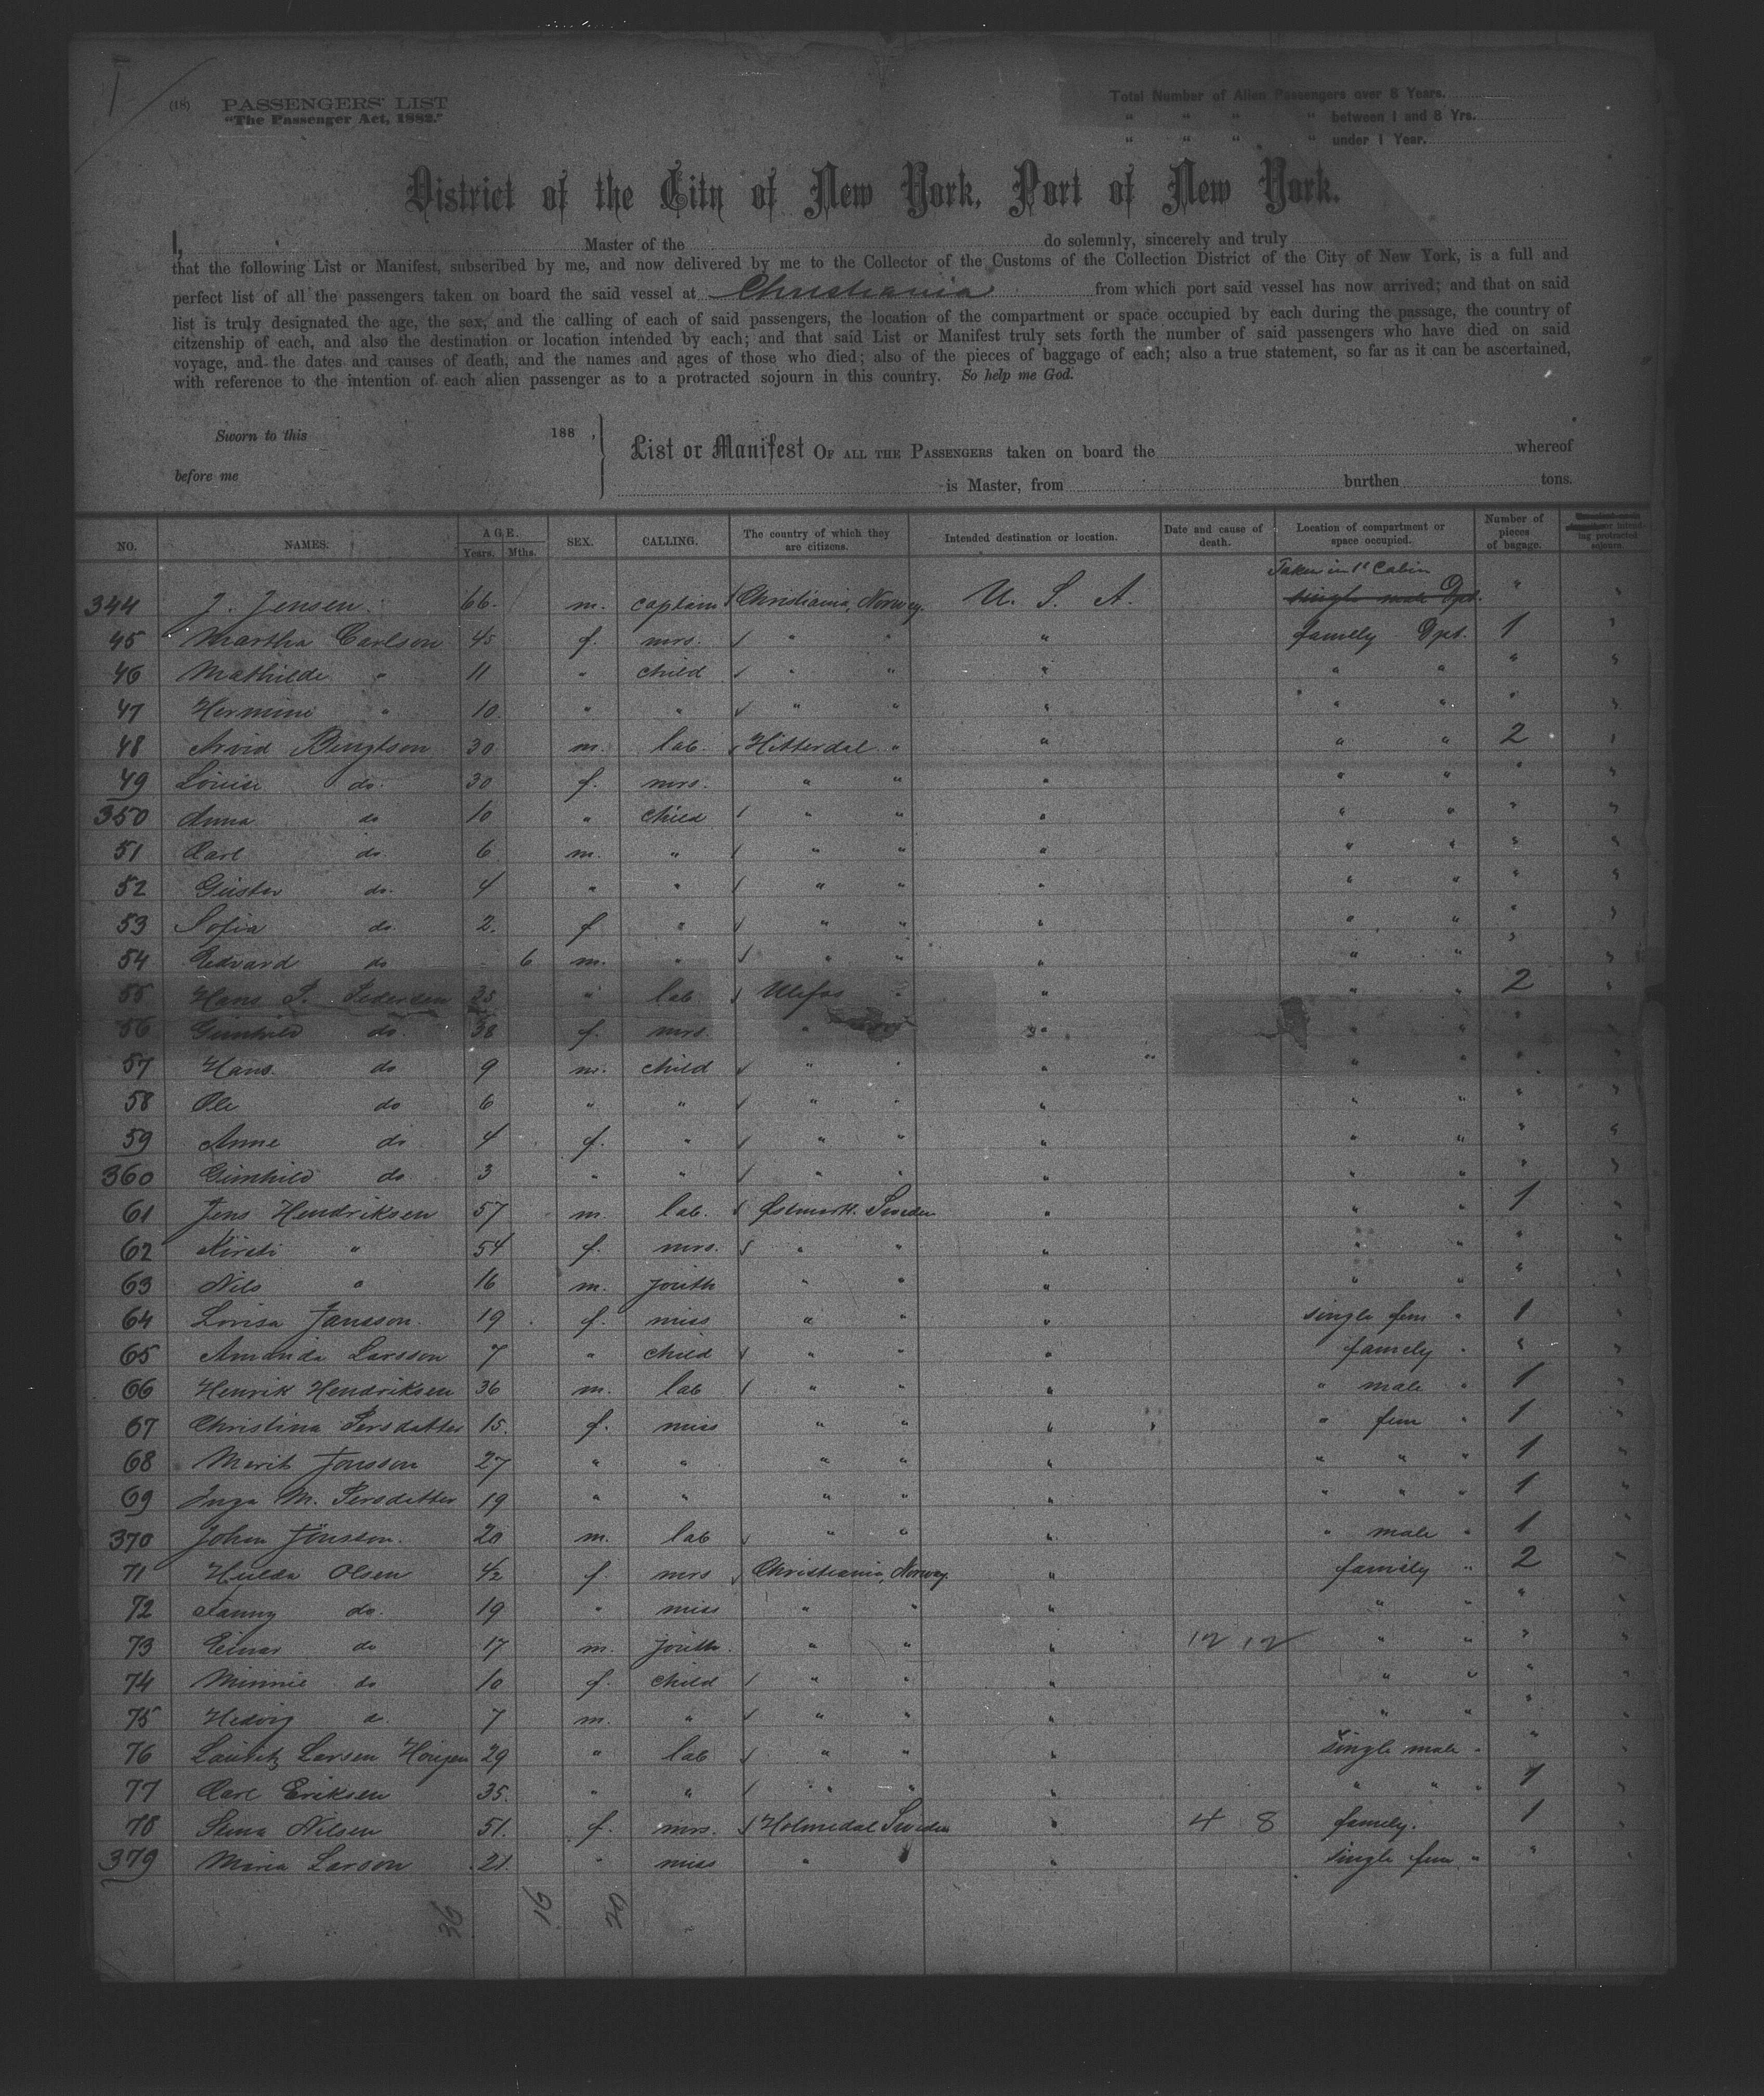 (18) PASSENGERS' LIST
"The Passenger Act, 1882."
Total Number of Alien Passengers over 8 Years.
" " " " between 1 and 8 Yrs.
" " " " under 1 Year.
District of the City of New York, Port of New York.
I, Master of the do solemnly, sincerely and truly
that the following List or Manifest, subscribed by me, and now delivered by me to the Collector of the Customs of the Collection District of the City of New York, is a full and
perfect list of all the passengers taken on board the said vessel at Christiania from which port said vessel has now arrived; and that on said
list is truly designated the age, the sex, and the calling of each of said passengers, the location of the compartment or space occupied by each during the passage, the country of
citzenship of each, and also the destination or location intended by each; and that said List or Manifest truly sets forth the number of said passengers who have died on said
voyage, and the dates and causes of death, and the names and ages of those who died; also of the pieces of baggage of each; also a true statement, so far as it can be ascertained,
with reference to the intention of each alien passenger as to a protracted sojourn in this country. So help me God.
Sworn to this 188 ,
before me
List or Manifest OF ALL THE PASSENGERS taken on board the whereof
is Master, from burthen tons.
NO. NAMES. AGE. Years. Mths. SEX. CALLING. The country of which they are citizens. Intended destination or location. Date and cause of death. Location of compartment or space occupied. Number of pieces of bagage.
Taken in 1st Cabin
344 J. Jensen 66. m. captain Christiania, Norway. U. S. A. single male Dpt. "
45 Martha Carlson 45 f. mrs. " " " famely Dpt. 1 "
46 Mathilde " 11 " child " " " " " " "
47 Hermine " 10 " " " " " " " " "
48 Arvid Bengtson 30 m. lab. Hitterdal " " " " 2 "
49 Louise do. 30 f. mrs. " " " " " " "
350 Anna do 10 " child " " " " " " "
51 Carl do 6 m. " " " " " " " "
52 Gustav do. 4 " " " " " " " " "
53 Sofia do. 2. f " " " " " " " "
54 Edvard do 6 m. " " " " " " " "
55 Hans P. Pedersen 35 " lab Ulefos " " " " 2 "
56 Gunhild do. 38 f. mrs. " " " " " "
57 Hans. do 9 m. child " " " " " " "
58 Ole do 6 " " " " " " " " "
59 Anne do 4 f. " " " " " " " "
360 Gunhild do 3 " " " " " " " " "
61 Jens Hendriksen 57 m. lab. Østmark. Sweden " " " 1 "
62 Kirsti " 54 f. mrs. " " " " " " "
63 Nils " 16 m. youth " " " " " " "
64 Lovisa Jansson. 19 f. miss " " " single fem " 1 "
65 Amanda Larsson 7 " child " " " famely " " "
66 Henrik Hendriksen 36 m. lab " " " " male " 1 "
67 Christina Persdatter 15. f. miss " " " " fem " 1 "
68 Marit Jonsson 27 " " " " " " " " 1 "
69 Inga M. Persdatter 19 " " " " " " " " 1 "
370 Johan Jönsson. 20 m. lab " " " " male " 1 "
71 Hulda Olsen 42 f. mrs Christiania, Norway " family " 2 "
72 Fanny do. 19 " miss " " " " " " "
73 Einar do 17 m. youth. " " " 12 12 " " " "
74 Minnie do 10 f. child " " " " " " "
75 Hedvig do. 7 m. " " " " " " " "
76 Lauritz Larsen Haugen 29 " lab " " " single male " " "
77 Carl Eriksen 35. " " " " " " " " 1 "
78 Stina Nilsen 51. f. mrs. Holmedal Sweden " 4 8 family. 1 "
379 Maria Larson 21. " miss " " single fem " " "
36 16 20